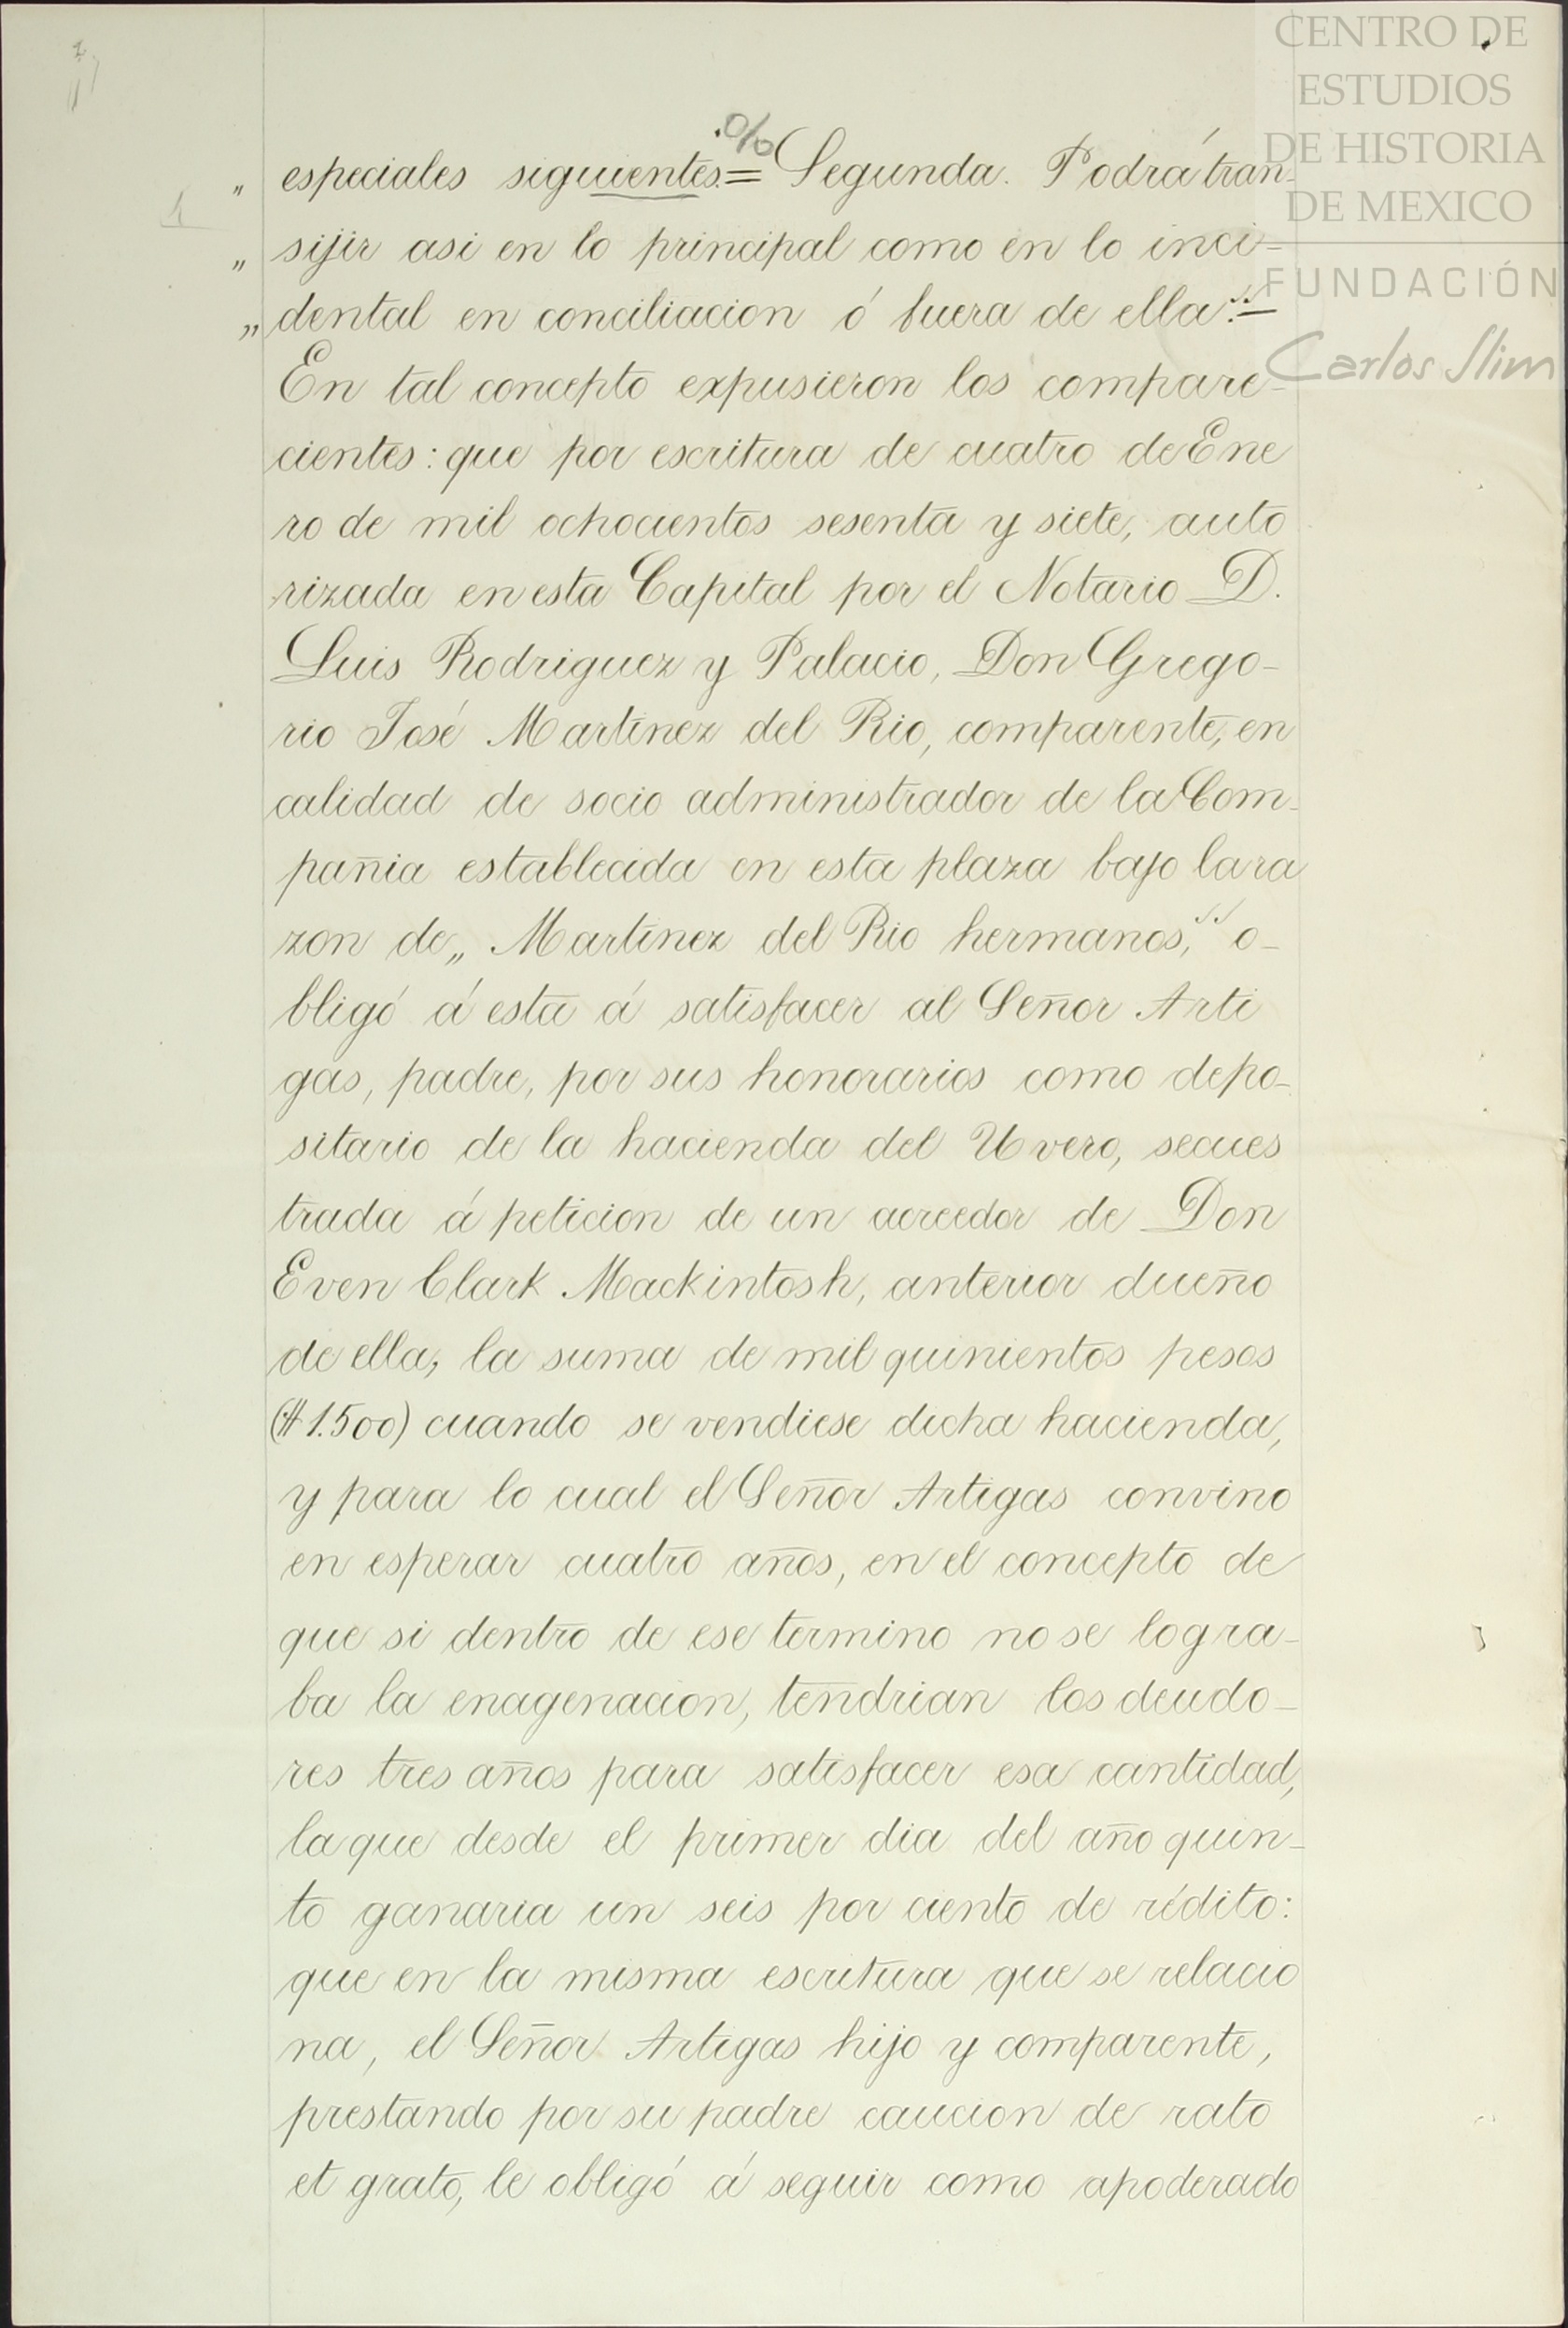 CENTRO DE
ESTUDIOS
DE HISTORIA
DE MEXICO
FUNDACIÓN
Carlos Slim
%
„ especiales siguientes.= Segunda. Podrá tran-
„ sijir asi en lo principal como en lo inci-
„ dental en conciliacion ó fuera de ella“.=
En tal concepto expusieron los compare-
cientes: que por escritura de cuatro de Ene
ro de mil ochocientos sesenta y siete, auto
rizada en esta Capital por el Notario D.
Luis Rodriguez y Palacio, Don Grego-
rio José Martinez del Rio, comparente, en
calidad de socio administrador de la Com-
pañia establecida en esta plaza bajo la ra
zon de „ Martinez del Rio hermanos,“ o-
bligó á esta á satisfacer al Señor Arti
gas, padre, por sus honorarios como depo-
sitario de la hacienda del Uvero, secues
trada á peticion de un acreedor de Don
Even Clark Mackintosh, anterior dueño
de ella, la suma de mil quinientos pesos
($1.500) cuando se vendiese dicha hacienda,
y para lo cual el Señor Artigas convino
en esperar cuatro años, en el concepto de
que si dentro de ese termino no se logra-
ba la enagenacion, tendrian los deudo-
res tres años para satisfacer esa cantidad,
la que desde el primer dia del año quin-
to ganaria un seis por ciento de rédito:
que en la misma escritura que se relacio
na, el Señor Artigas hijo y comparente,
prestando por su padre caucion de rato
et grato, le obligó á seguir como apoderado